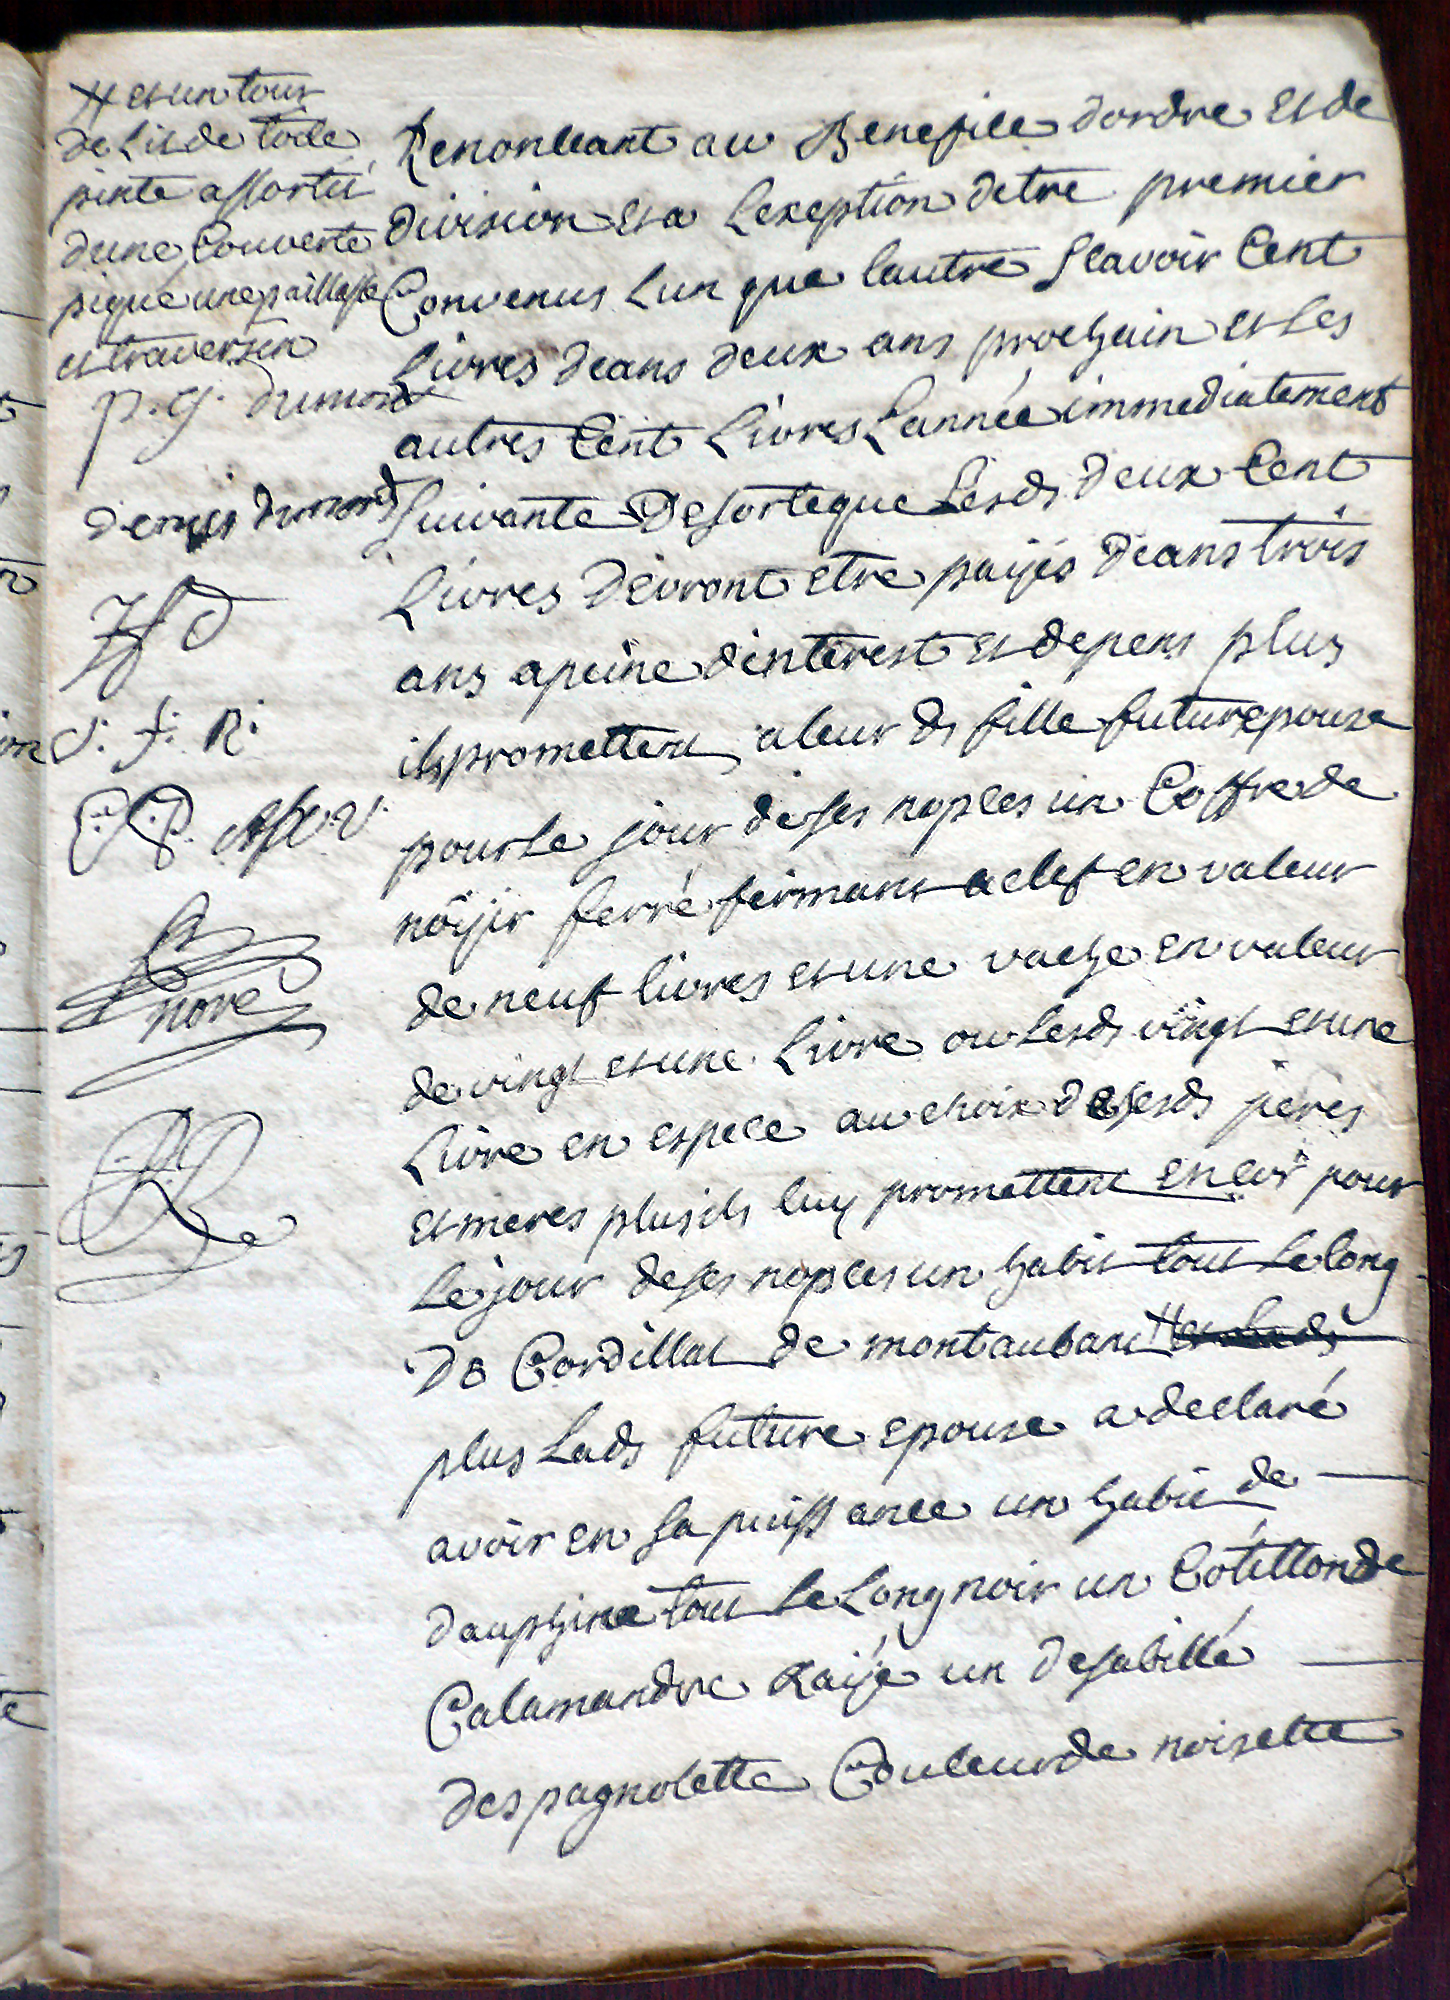 # et un tour
de lit de toile
pinte assortie
dune Couverte
piqué une paillasse
et traversin
p. g. dumont
denis dumond
J. f. R.
nore
Renonceant au Benefice dordre et de
division et a Lexeption detre premier
Convenus Lun que lautre Scavoir Cent
Livres deans deux ans prochain et Les
autres Cent Livres Lannée immediatement
Suivante De sorte que Lesds deux Cent
Livres devront etre paÿés deans trois
ans a peine dinterest et depens plus
ils promettent a leur de fille future epouse
pour Le jour de ses nopces un Coffre de
noÿir ferré fermant a clef en valeur
de neuf livres et une vache en valeur
de vingt et une Livre ou Lesds vingt et une
Livre en espece au choix de sesds peres
et meres plus ils luy promettent encor pour
Le jour de ses nopces un habit tout Le long
De Cordillat de montauban #
plus Lads future epouse a declaré
avoir en sa puissance un habit de
dauphine tout Le Long noir un Cotillon de
Calamandre Raÿé un desabillé
despagnolette Couleur de noisette